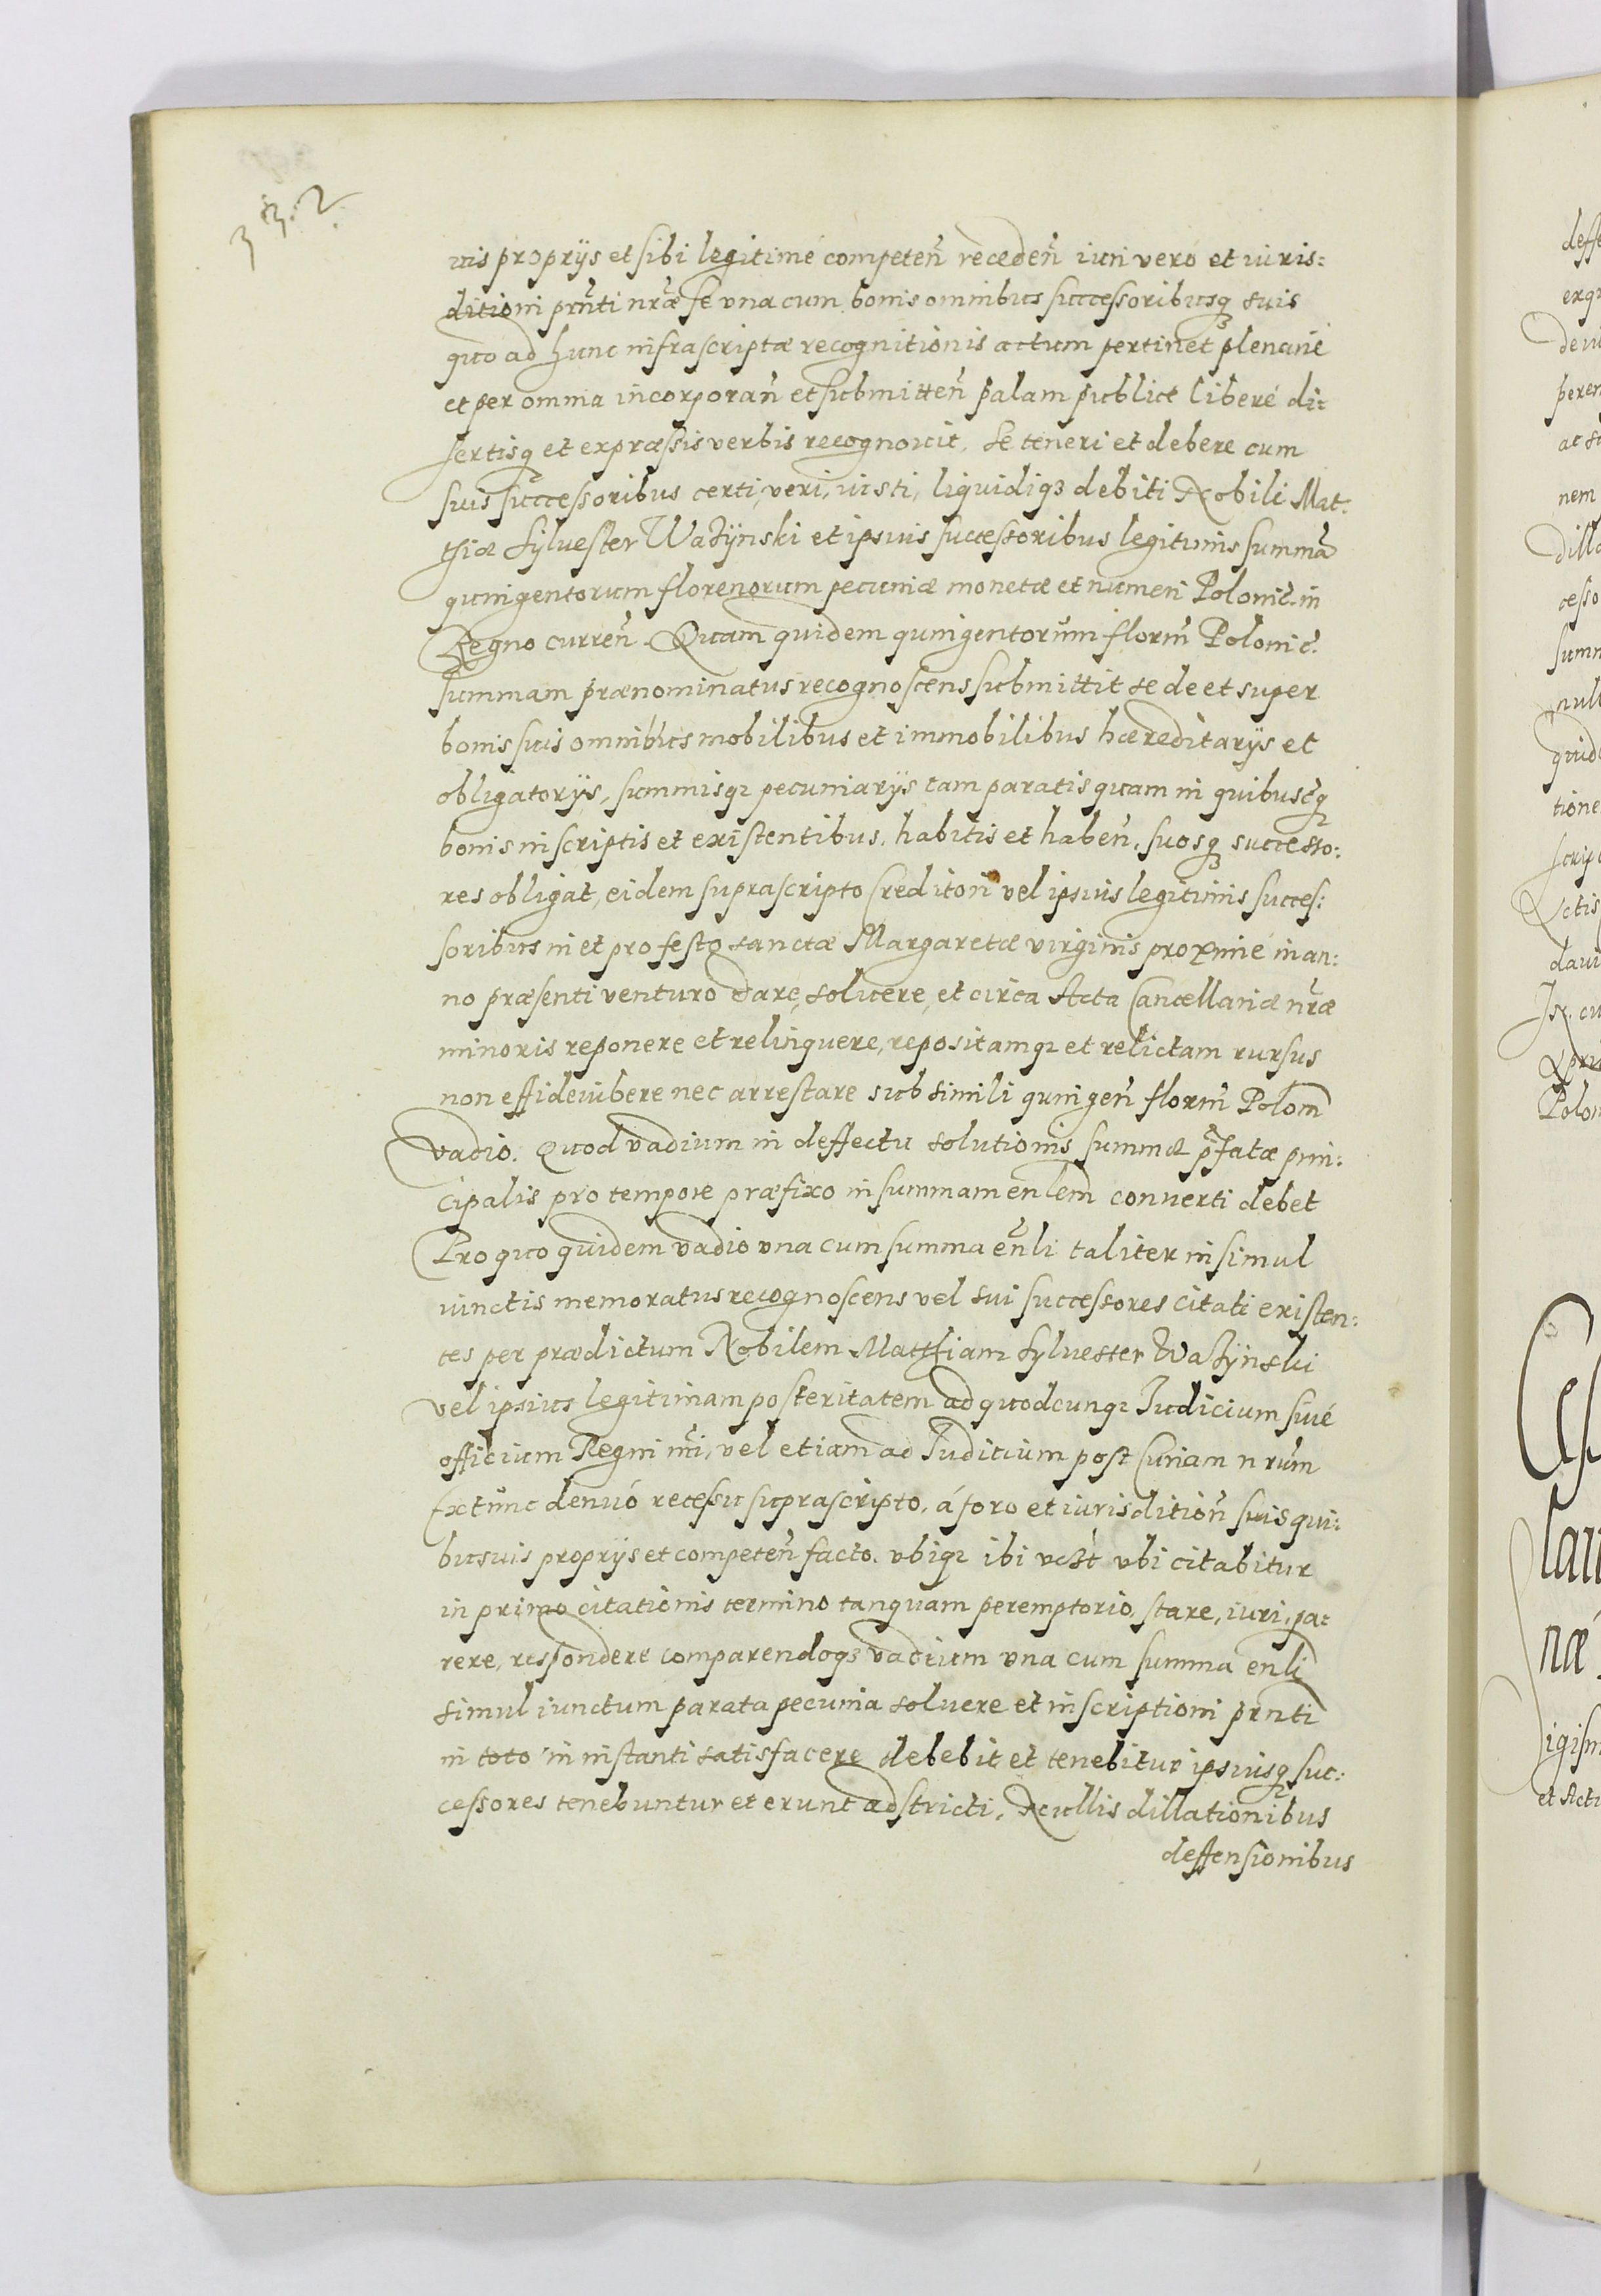 332
uis proprijs et sibi legitimé competeñ recedeñ iuri veró et iuris:
ditioni pñti nr̃æ se vna cum bonis omnibus successoribusq suis
quo ad hunc infrascriptæ recognitionis actum pertinet plenarié
et per omnia incorporañ et submitteñ palam publicé liberé di:
sertisq et expræssis verbis recognouit, se teneri et debere cum
suis successoribus certi, veri, iusti, liquidiq3 debiti Nobili Mat:
thiæ Syluester Ważÿnski et ipsius successoribus legitimis summã
quingentorum florenorum pecuniæ monetæ et numeri Polonic̃. in
Regno curreñ. Quam quidem quingentorum florm̃ Polonic̃.
summam prænominatus recognoscens submittit se de et super
bonis suis omnibus mobilibus et immobilibus hæreditarijs et
obligatorijs, summisq3 pecuniarijs tam paratis quam in quibuscq3
bonis inscriptis et existentibus, habitis et habeñ, suosq3 successo:
res obligat, eidem suprascripto Creditori vel ipsius legitimis succes:
soribus in et pro festo sanctæ Margaretæ virginis proximé in an:
no præsenti venturo dare, soluere, et circa Acta Cancellariæ nr̃æ
minoris reponere et relinquere, repositamq3 et relictam rursus
non effideiubere nec arrestare sub simili quingeñ florm̃ Polom̃
vadio. Quod vadium in deffectu solutionis summæ p̃fatæ prin:
cipalis pro tempore præfixo in summam enlem̃ conuerti debet
Pro quo quidem vadio vna cum summa eñli taliter insimul
iunctis memoratus recognoscens vel sui successores citati existen:
tes per prædictum Nobilem Matthiam Syluester Ważÿnski
vel ipsius legitimam posteritatem ad quodcunq3 Iudicium siué
officium Regni nr̃i, vel etiam ad Iudicium post Curiam nrũm
Extunc denuó recessu suprascripto, á foro et iurisditioñ suis qui:
busuis proprijs et competeñ facto. vbiq3 ibi vc3t vbi citabitur
in primo citationis termino tanquam peremptorio, stare, iuri, pa:
rere, respondere comparendoq3 vadium vna cum summa enli
simul iunctum parata pecunia soluere et inscriptioni prnti
in toto in instanti satisfacere debebit et tenebitur ipsiusq3 suc:
cessores tenebuntur et erunt adstricti, Nullis dillationibus
deffensionibus